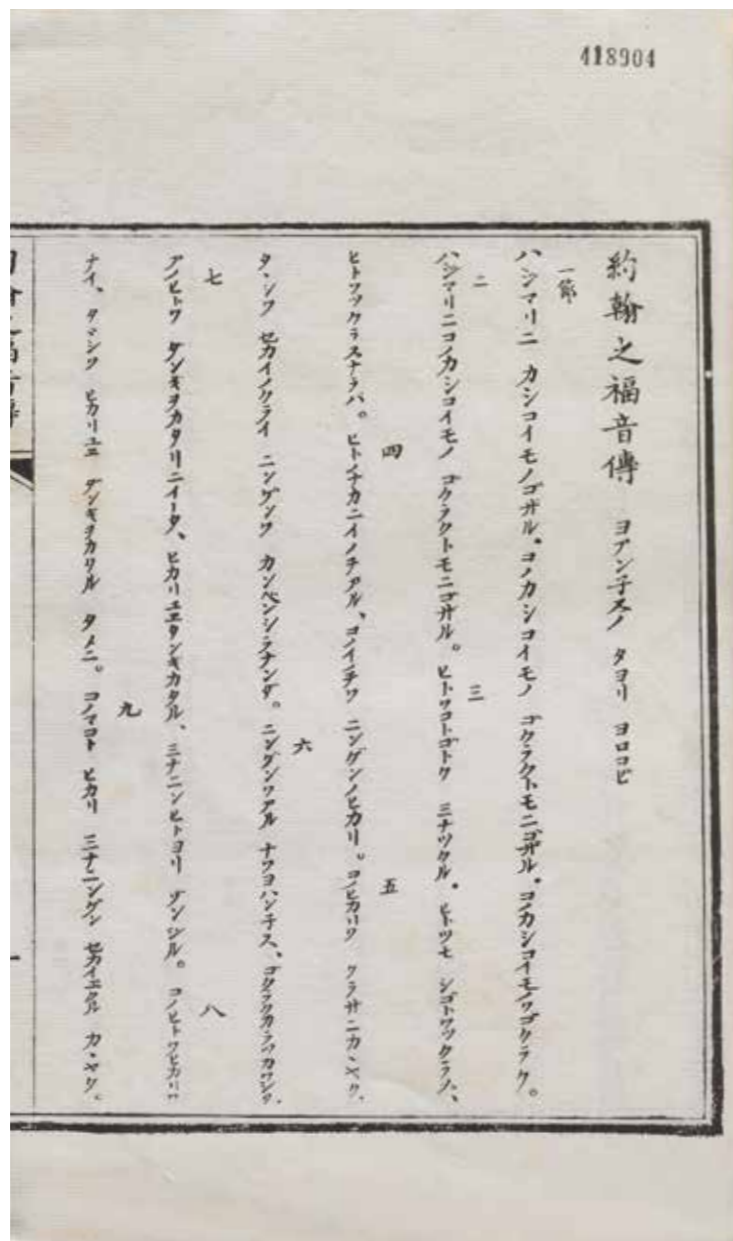 418904
約翰之福音傳 ヨアン子スノ タヨリ ヨロコビ
一節
ハジマリニ カシコイモノゴザル。コノカシコイモノ ゴクラクトモニゴザル。コノカシコイモノワゴクラク。
二
ハジマリニコノカシコイモノ ゴクラクトモニゴザル。三ヒトワコトゴトク ミナツクル。ヒトツモ シゴトワツクラヌ、
ヒトワツクラヌナラバ。四ヒトノナカニイノチアル、コノイノチワ ニンゲンノヒカリ。五コノヒカリワ クラサニカヽヤク、
タヾシワ セカイノクライ ニンゲンワ カンベンシラナンダ。六ニンゲンワアル ナワヨハン子ス、ゴクラクカラツカワシタ。
七
アノヒトワ ダンギヲカタリニイータ、ヒカリユエダンギカタル、ミナニンヒトヨリ ゾンジル。八コノヒトワヒカリワ
ナイ、タヾシワ ヒカリユエ ダンギヲカタル タメニ。九コノマコト ヒカリ ミナニンゲン セカイエクル カヽヤク。